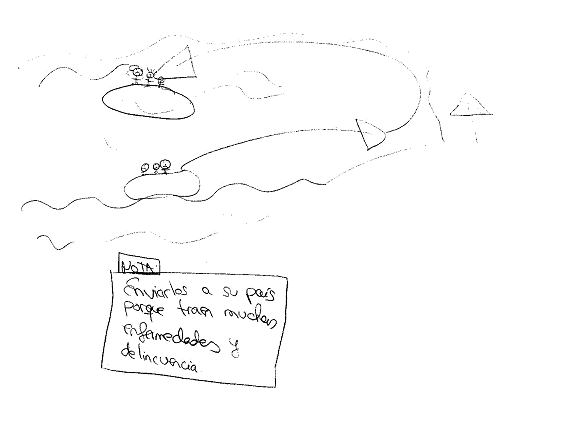 NOTA:
Enviarlos a su país
porque traen muchas
enfermedades y
delincuencia